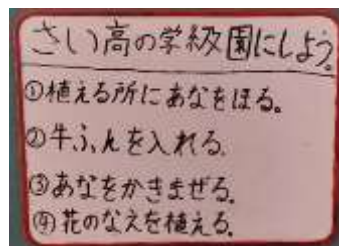 さい高の学級園にしよう。
①植える所にあなをほる。
②牛ふんを入れる。
③あなをかきまぜる。
④花のなえを植える。